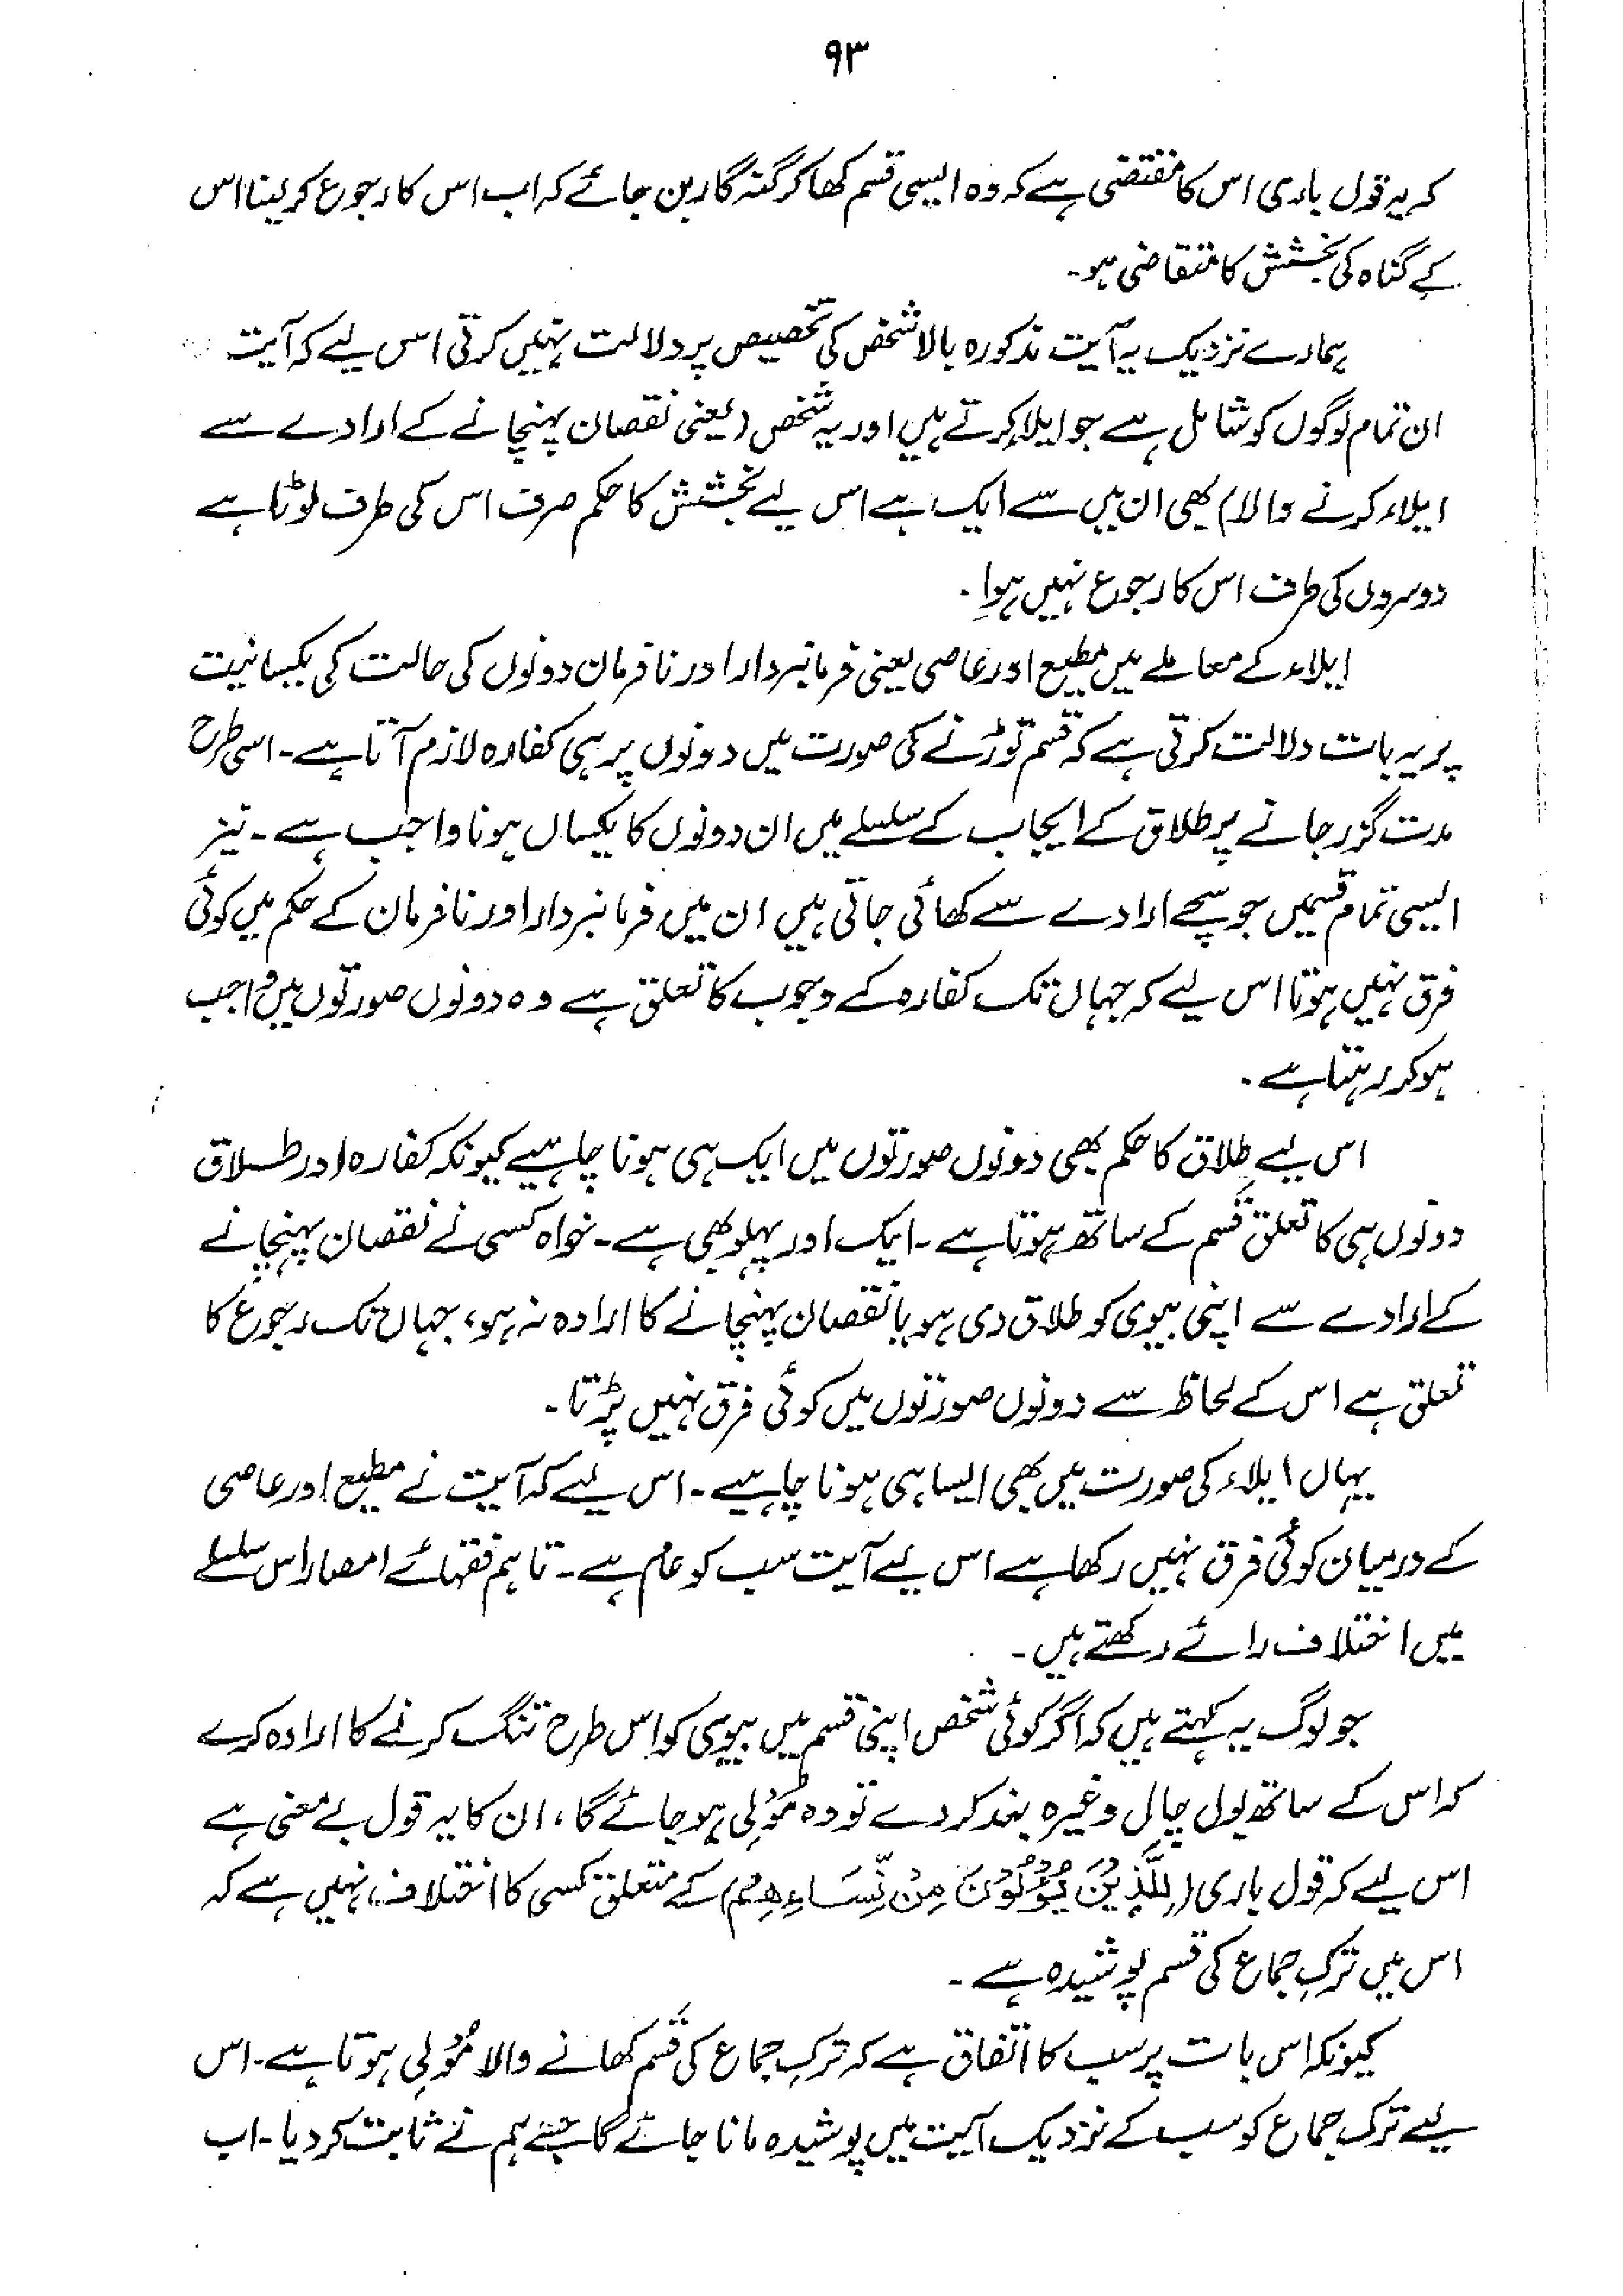 ۹۳
کریہ قول باری اس کا مقتضی ہے کہ وہ ایسی قسم کھا کر گنہ گار بن جائے کہ اب اس کا رجوع کر لینا اس
کے گناہ کی بخشش کا متقاضی ہو۔
ہمارے نزدیک یہ آیت مذکورہ بالا شخص کی تخصیص پر دلالت نہیں کرتی اس لیے کہ آیت
ان تمام لوگوں کو شامل ہے جو ایلاء کرتے ہیں اور یہ شخص (یعنی نقصان پہنچانے کے ارادے سے
ایلاء کرنے والا) بھی ان میں سے ایک ہے اس لیے بخشش کا حکم صرف اس کی طرف لوٹا ہے
دوسروں کی طرف اس کا رجوع نہیں ہوا۔
ایلاء کے معاملے میں مطیع اور عاصی یعنی فرمانبردار اور نافرمان دونوں کی حالت کی یکسانیت
پر یہ بات دلالت کرتی ہے کہ قسم توڑنے کی صورت میں دونوں پر ہی کفارہ لازم آتا ہے۔ اسی طرح
مدت گزر جانے پر طلاق کے ایجاب کے سلسلے میں ان دونوں کا یکساں ہونا واجب ہے۔ نیز
ایسی تمام قسمیں جو سچے ارادے سے کھائی جاتی ہیں ان میں فرمانبردار اور نافرمان کے حکم میں کوئی
فرق نہیں ہوتا اس لیے کہ جہاں تک کفارہ کے وجوب کا تعلق ہے وہ دونوں صورتوں میں واجب
ہو کر رہتا ہے۔
اس لیے طلاق کا حکم بھی دونوں صورتوں میں ایک ہی ہونا چاہیے کیونکہ کفارہ اور طلاق
دونوں ہی کا تعلق قسم کے ساتھ ہوتا ہے۔ ایک اور پہلو بھی ہے۔ خواہ کسی نے نقصان پہنچانے
کے ارادے سے اپنی بیوی کو طلاق دی ہو یا نقصان پہنچانے کا ارادہ نہ ہو، جہاں تک رجوع کا
تعلق ہے اس کے لحاظ سے دونوں صورتوں میں کوئی فرق نہیں پڑتا۔
یہاں ایلاء کی صورت میں بھی ایسا ہی ہونا چاہیے۔ اس لیے کہ آیت نے مطیع اور عاصی
کے درمیان کوئی فرق نہیں رکھا ہے اس لیے آیت سب کو عام ہے۔ تاہم فقہائے امصار اس سلسلے
میں اختلاف رائے رکھتے ہیں۔
جو لوگ یہ کہتے ہیں کہ اگر کوئی شخص اپنی قسم میں بیوی کو اس طرح تنگ کرنے کا ارادہ کرے
کہ اس کے ساتھ بول چال وغیرہ بند کر دے تو وہ مُولِی ہو جائے گا، ان کا یہ قول بے معنی ہے
اس لیے کہ قول باری (لِلَّذِیْنَ یُؤْلُوْنَ مِنْ نِّسَاءِھِمْ) کے متعلق کسی کا اختلاف نہیں ہے کہ
اس میں ترکِ جماع کی قسم پوشیدہ ہے۔
کیونکہ اس بات پر سب کا اتفاق ہے کہ ترکِ جماع کی قسم کھانے والا مُولِی ہوتا ہے۔ اس
لیے ترک جماع کو سب کے نزدیک آیت میں پوشیدہ مانا جائے گا جسے ہم نے ثابت کر دیا۔ اب